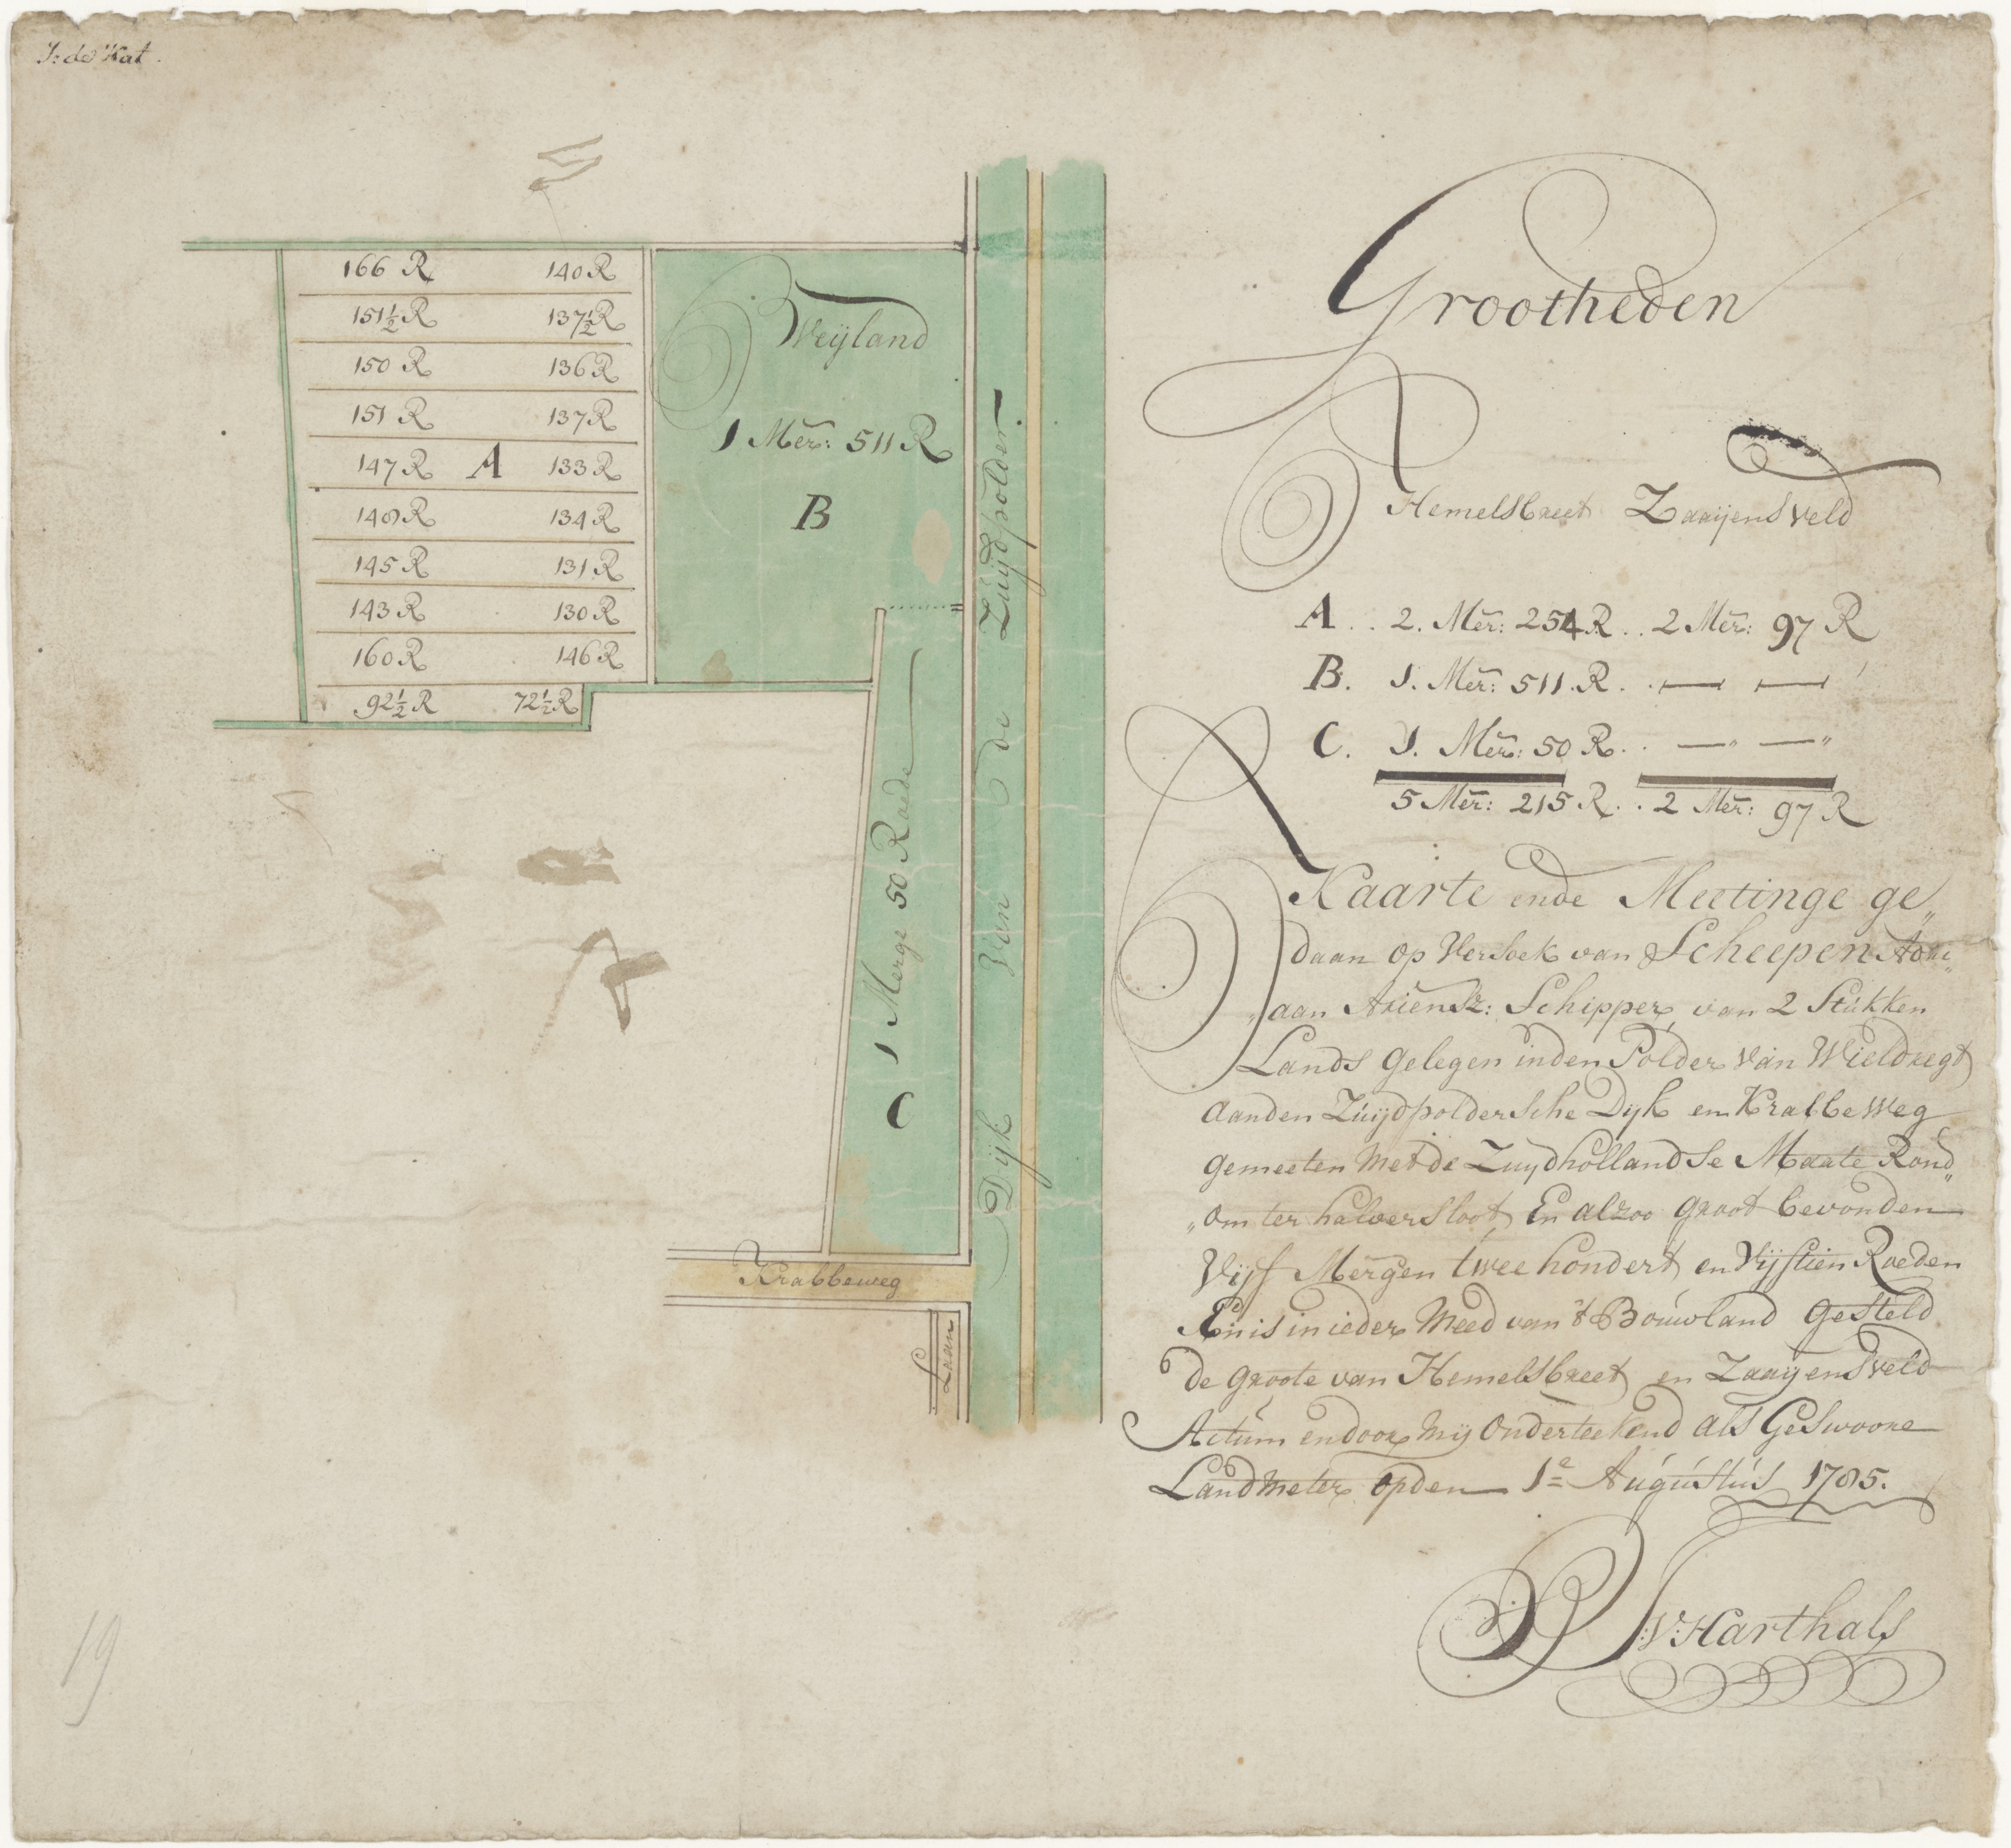 J: de Kat.
166 R 140 R
151½ R 137½ R
150 R 136 R
151 R 137 R
147 R A 133 R
148 R 134 R
145 R 131 R
143 R 130 R
160 R 146 R
92½ R 72½ R
Weijland
1 Mer: 511 R
B
C 1 Merge 50 Roede
Dijk van de Zuijdpolder
Krabbeweg
Laan
19
Grootheden
Hemelsbreet Zaaijensveld
A .. 2. Mer: 254 R .. 2 Mer: 97 R
B. 1. Mer: 511 R. . — —
C. 1. Mer: 50 R. . —" —"
5 Mer: 215 R. . 2 Mer: 97 R
Kaarte ende Meetinge ge„
daan op Versoek van Scheepen Adri„
„aan Ariensz: Schipper, van 2 Stukken
Lands gelegen inden Polder van Wieldregt
aanden Zuijdpoldersche Dijk en Krabbeweg
gemeeten met de Zuijdhollandse Maate Rond„
„om ter halver sloot, En alzoo groot bevonden
Vijf Mergen twee hondert en Vijftien Roeden
En is in ieder Meed van 't Bouwland gesteld
de groote van Hemelsbreet en Zaaijensveld
Actum en door Mij Onderteekend als Geswoore
Landmeter opden 1e Augustus 1785.
V: Karthals